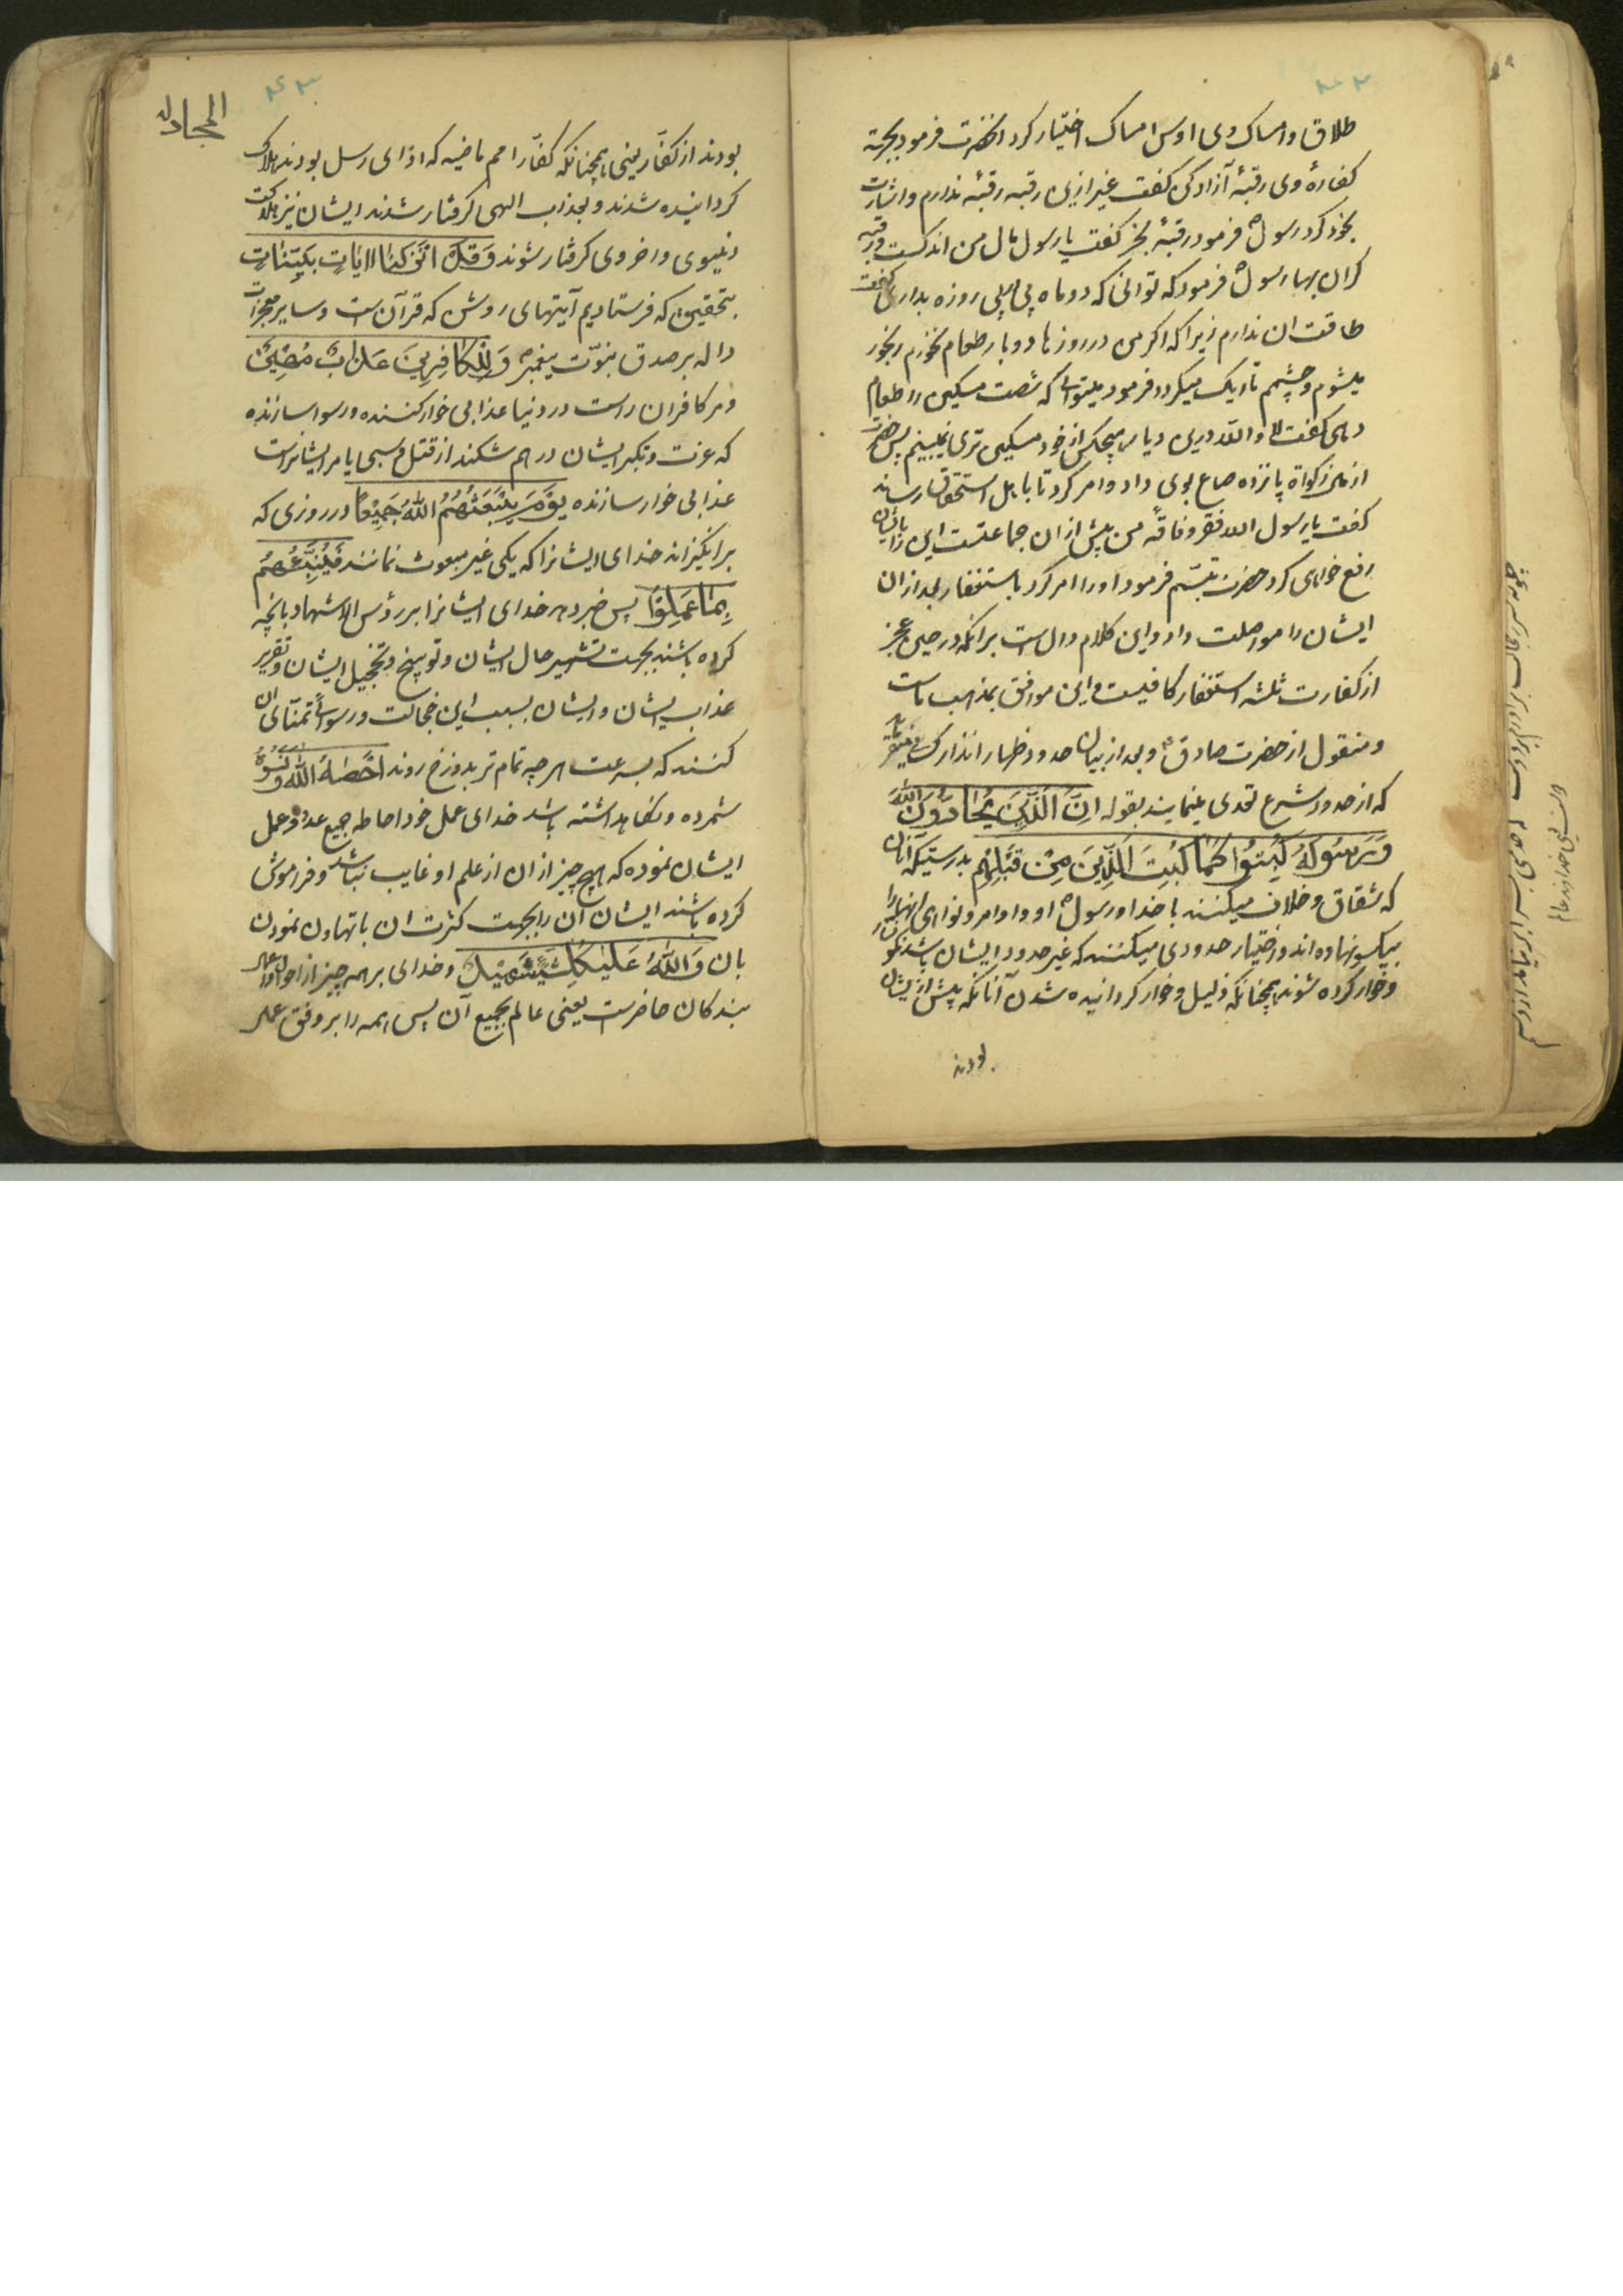 طلاق و امساک وی اوس امساک اختیار کرد انحضرت فرمود بجهة
کفارهٔ وی رقبهٔ آزاد کن گفت غیر ازین رقبه رقبهٔ ندارم و اشارت
بخود کرد رسولؐ فرمود رقبهٔ بخر گفت یا رسول مال من اندکست و رقبه
کران بها رسولؐ فرمود که توانی که دو ماه پی اپی روزه بداری گفت
طاقت ان ندارم زیرا که اکر من در روزها دو بار طعام نخورم رنجور
میشوم و چشمم تاریک میکردد فرمود میتوانی که شصت مسکین را طعام
دهی گفت لا و الله درین دیار هیچکس از خود مسکین تری نمیبینم پس حضرت
از مال زکواة پانزده صاع بوی داد و امر کرد تا باهل استحقاق رساند
گفت یا رسول الله فقر و فاقهٔ من بیش از ان جماعتست این را بایشان
رفع خواهی کرد حضرت تبسّم فرمود و او را امر کرد باستغفار بعد از ان
ایشان را مواصلت داد و این کلام دال است بر انکه در حین عجز
از کفارت ثلثه استغفار کافیست و این موافق بمذهب ماست
و منقول از حضرت صادقؑ و بعد از بیان حدود ظهار انذار
که از حدود شرع تعدی مینمایند بقوله اِنَّ الَّذِینَ یُحَادُّونَ اللّٰهَ
وَرَسُولَهُ کُبِتُوا کَمَا کُبِتَ الَّذِینَ مِنْ قَبْلِهِمْ بدرستیکه آنان
که شقاق و خلاف میکنند با خدا و رسولؐ او و اوامر و نواهی انها را
بیکسو نهاده اند و اختیار حدودی میکنند که غیر حدود ایشان باشد نکونسار
و خوار کرده شوند همچنانکه ذلیل و خوار کردانیده شدن آنانکه پیش از ایشان
بودند
المجادله
بودند از کفار یعنی همچنانکه کفار امم ماضیه که اعدای رسل بودند هلاک
کردانیده شدند و بعذاب الهی کرفتار شدند ایشان نیز بهلاکت
دنیوی و اخروی کرفتار شوند وَقَدْ اَنْزَلْنَا اٰیَاتٍ بَیِّنَاتٍ
بتحقیق که فرستادیم آیتهای روشن که قرآن است و سایر معجزات
داله بر صدق نبوّت پیغمبرؐ وَلِلْکَافِرِینَ عَذَابٌ مُهِینٌ
و مر کافران راست در دنیا عذابی خوار کننده و رسوا سازنده
که عزت و تکبر ایشان در هم شکند از قتل و سبی یا مر ایشانراست
عذابی خوار سازنده یَوْمَ یَبْعَثُهُمُ اللّٰهُ جَمِیْعًا در روزی که
برانکیزاند خدای ایشانرا که یکی غیر مبعوث نمانند فَیُنَبِّئُهُمْ
بِمَا عَمِلُوا پس خبر دهد خدای ایشانرا بر رؤس الاشهاد بانچه
کرده باشند بجهت تشهیر حال ایشان و توبیخ و تخجیل ایشان و تقریر
عذاب ایشان و ایشان بسبب این خجالت و رسوائی تمنّای ان
کنند که بسرعت هر چه تمام تر بدوزخ روند اَحْصٰهُ اللّٰهُ وَنَسُوهُ
شمرده و نکاهداشته باشد خدای عمل خود احاطه جمیع عدد عمل
ایشان نموده که هیچ چیز از ان از علم او غایب نباشد و فراموش
کرده باشند ایشان آن را بجهت کثرت ان با تهاون نمودن
بان وَاللّٰهُ عَلٰی کُلِّ شَیْءٍ شَهِیْدٌ و خدای بر همه چیز از احوال و اعمال
بندکان حاضرست یعنی عالم بجمیع آن پس همه را بر وفق عمل